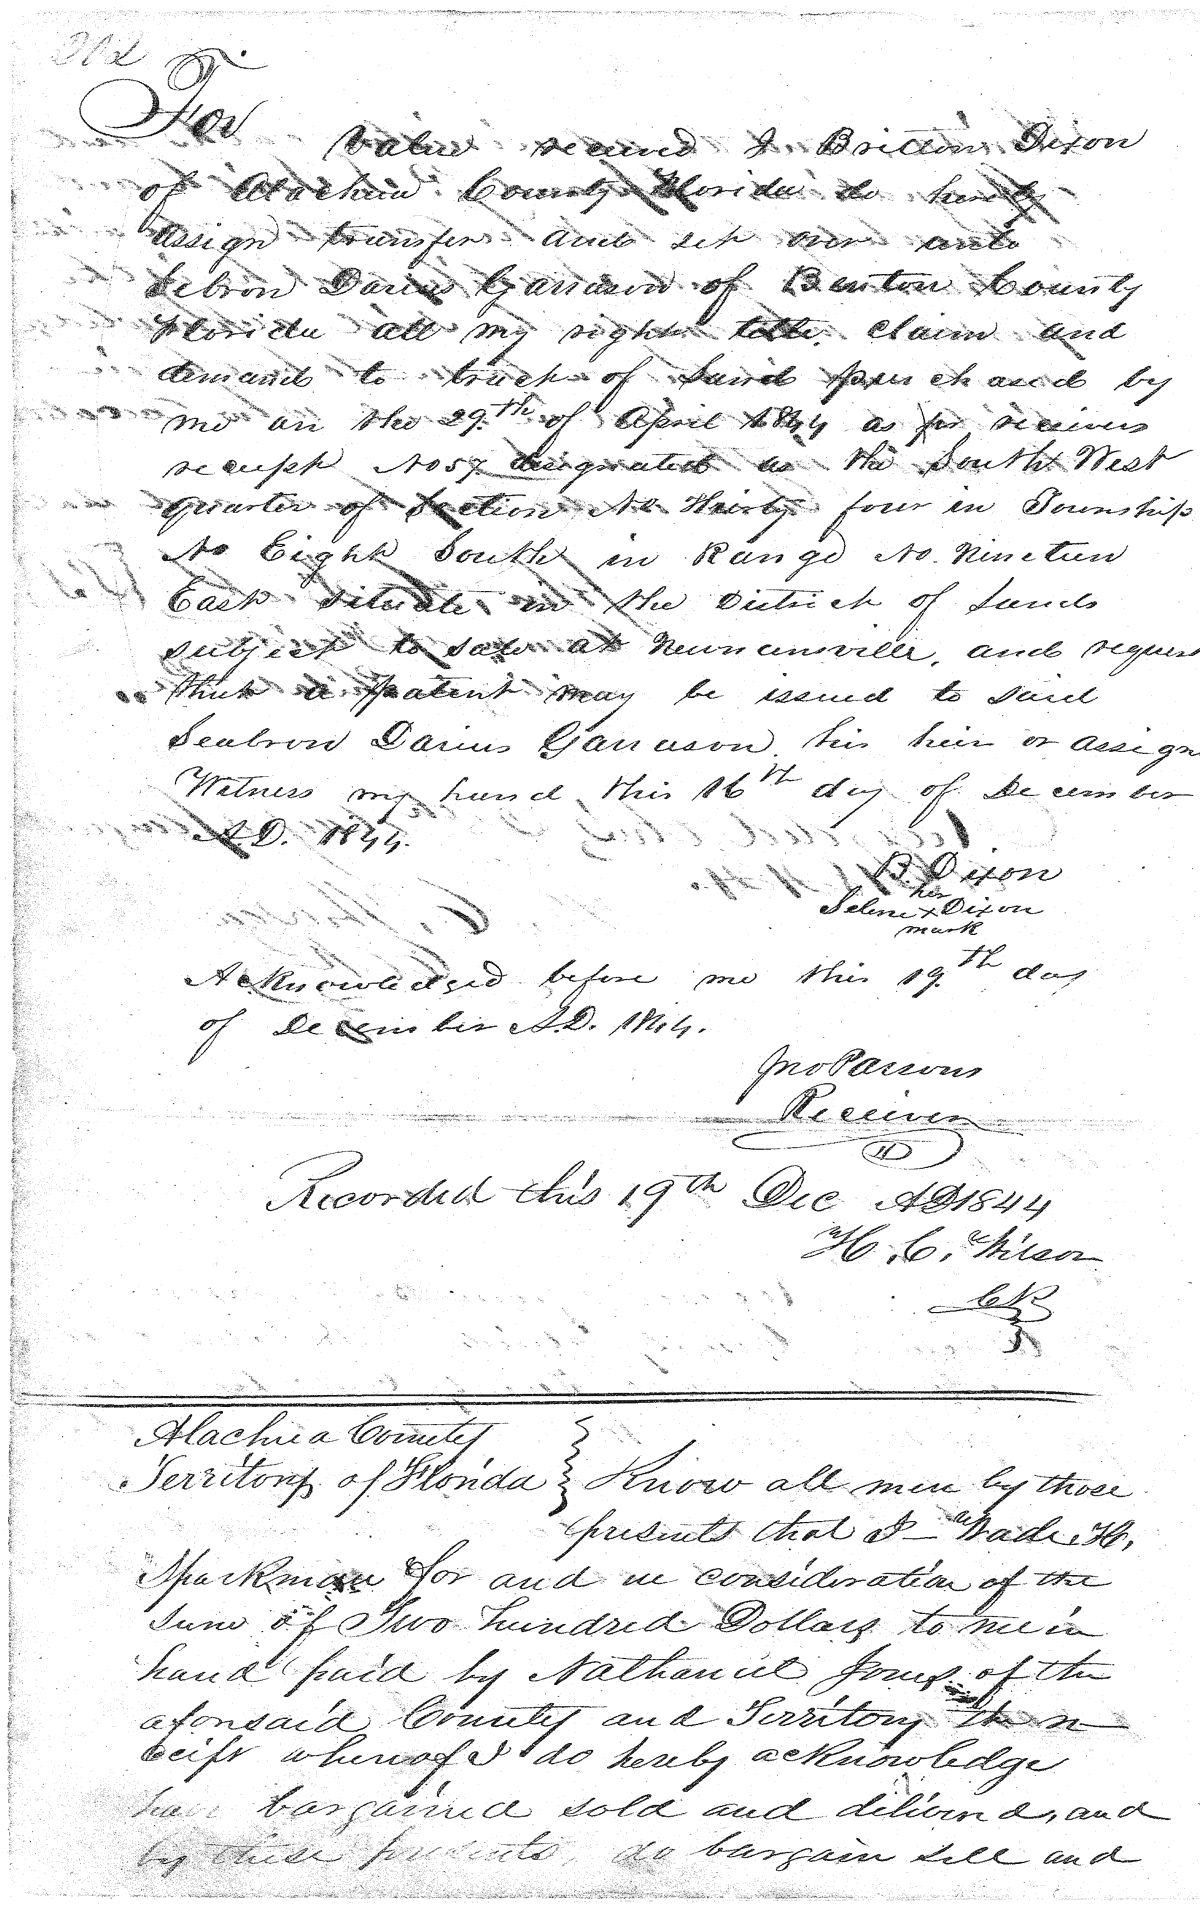 202
For value received I Britton Dixon
of Alachua County Florida do hereby
assign transfer and set over unto
Sebron Darius Garrason of Benton County
Florida all my right title claim and
demand to track of Land purchased by
me on the 29th of April 1844 as per receivers
receipt No 57 designated as the South West
quarter of Section No Thirty four in Township
No Eight South in Range No. Nineteen
East situate in the District of Lands
subject to sale at Newnansville, and request
that a patent may be issued to said
Seabron Darius Garrason his heir or assign
Witness my hand this 16th day of December
A.D. 1844.
B. Dixon
her
Selene x Dixon
mark
Acknowledged before me this 19th day
of December A.D. 1844.
Jno Parsons
Receiver
Recorded this 19th Dec AD 1844
H. C. Wilson
Ck
Alachua County
Territory of Florida } Know all men by those
presents that I Wade H.
Sparkman for and in consideration of the
sum of Two hundred Dollars to me in
hand paid by Nathaniel Jones of the
aforesaid County and Territory the re-
ceipt whereof I do hereby acknowledge
have bargained sold and delivered, and
by these presents, do bargain sell and